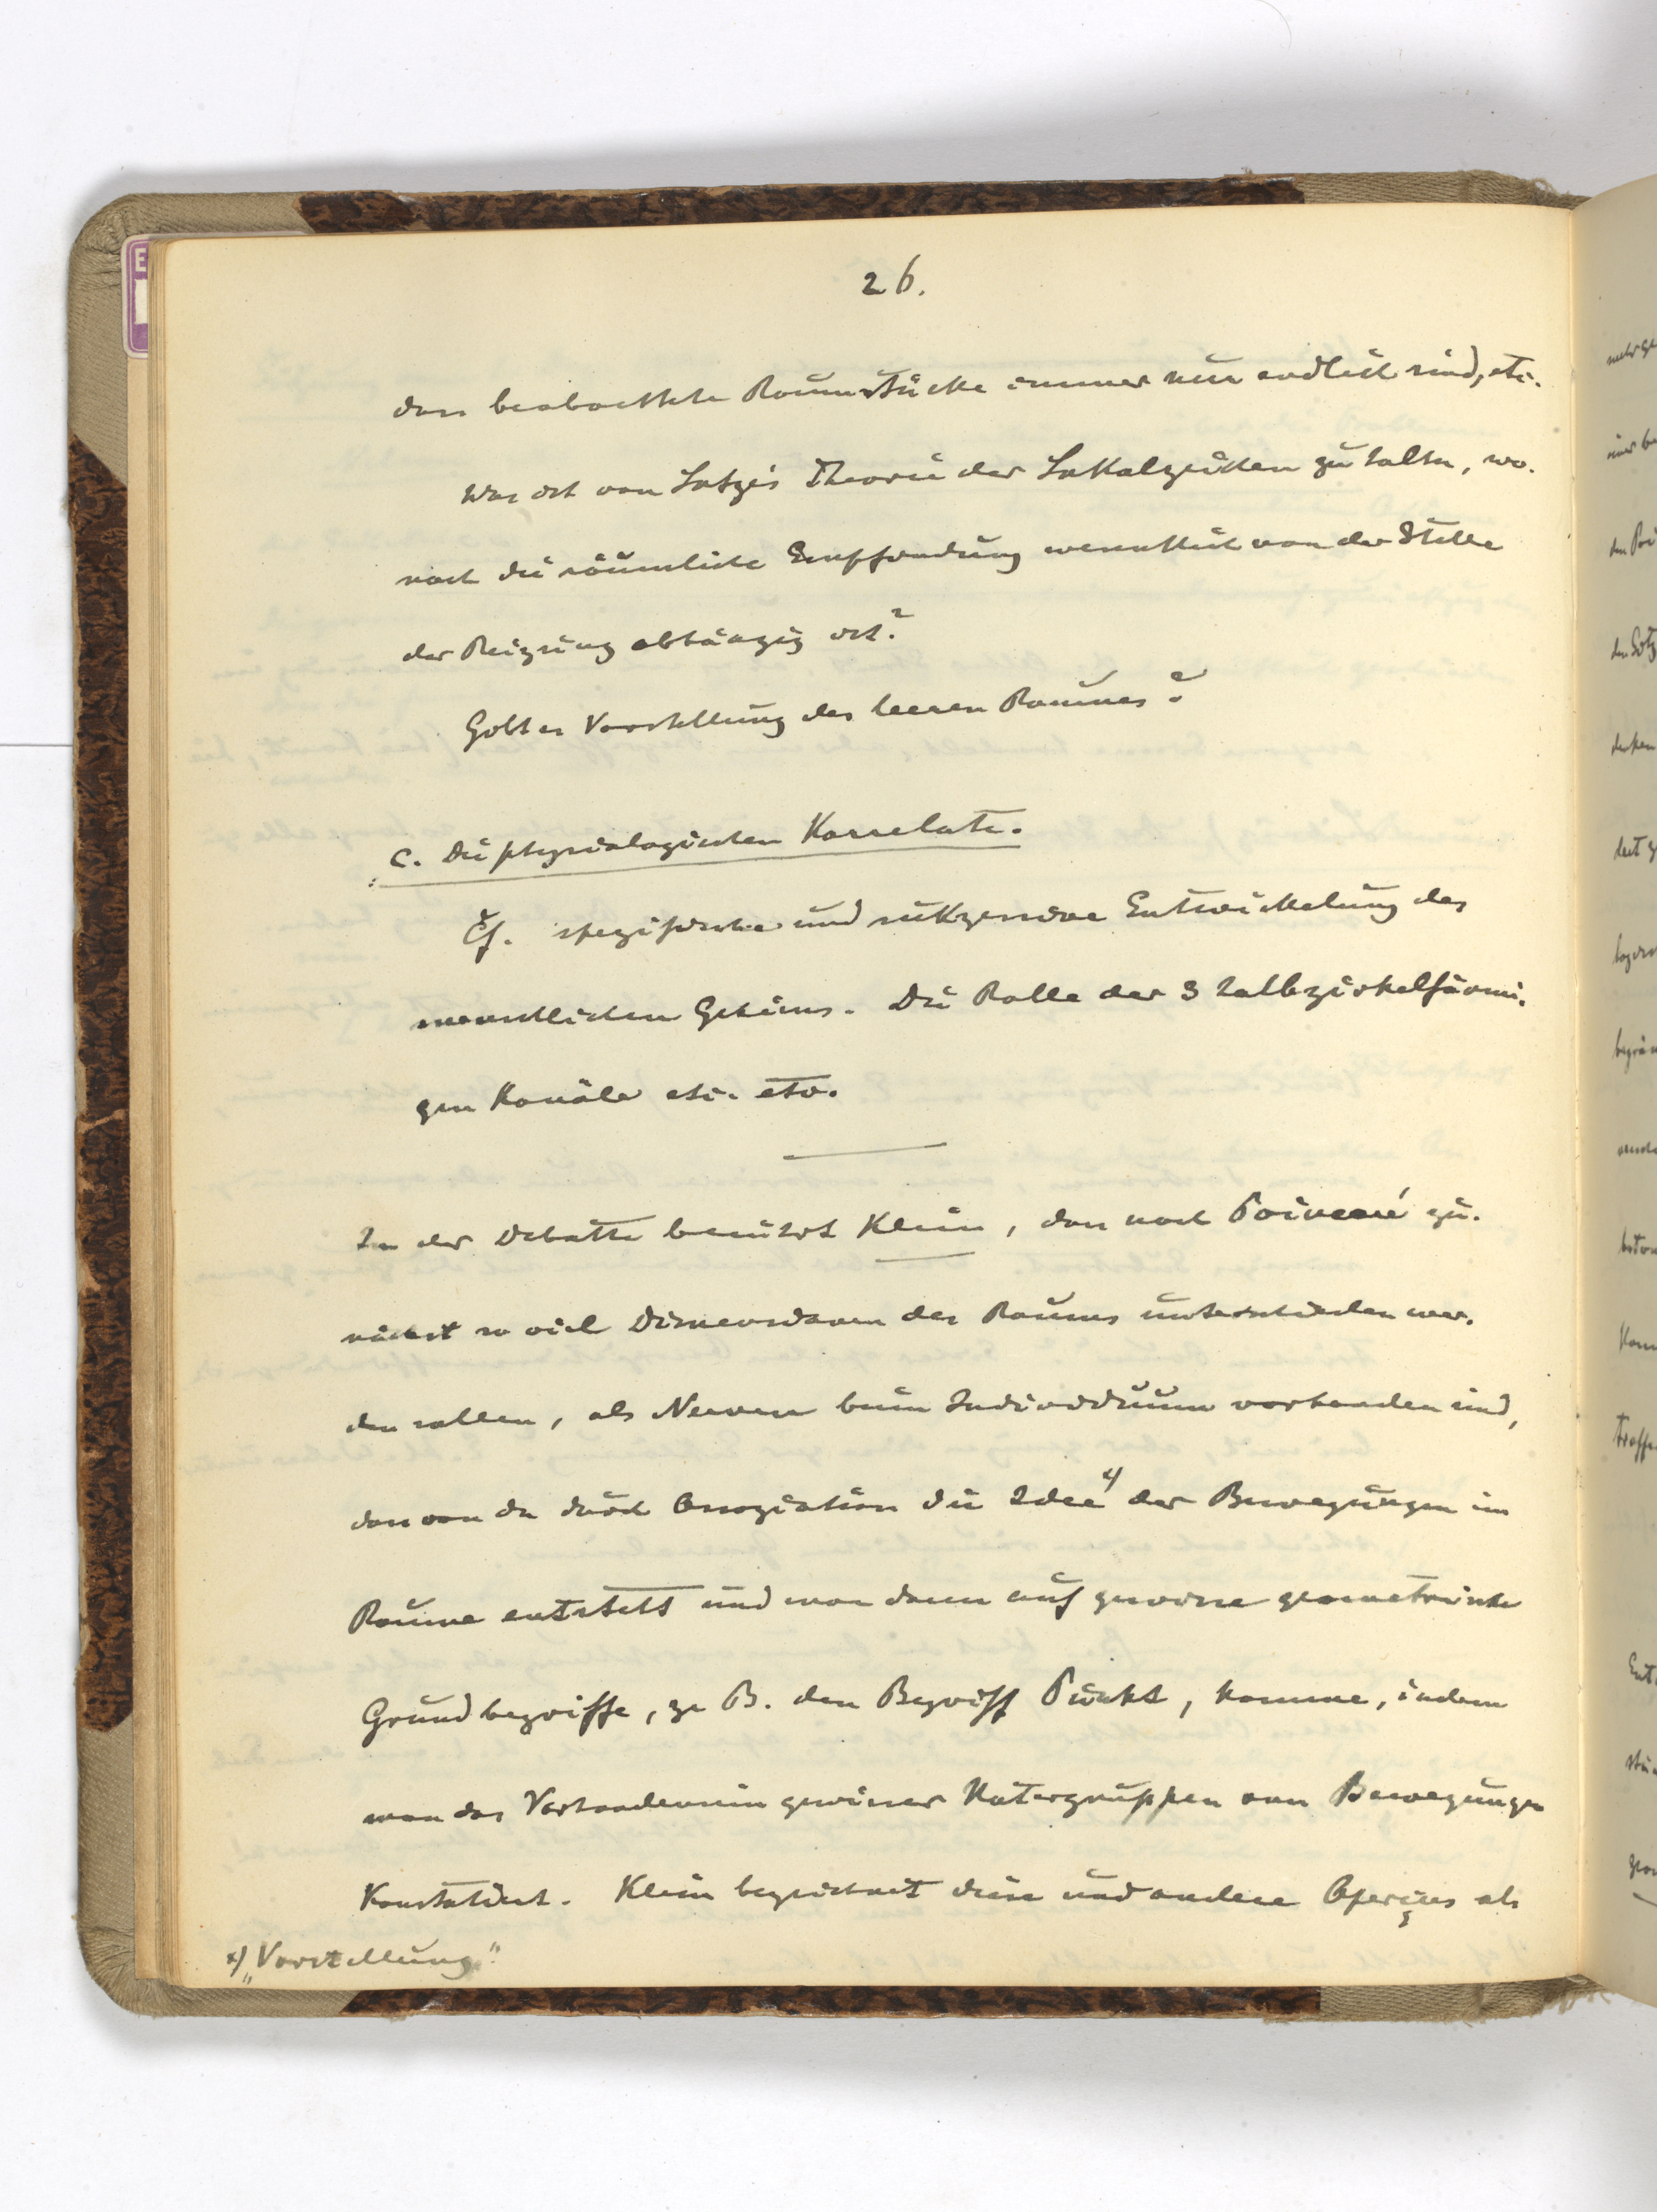 26.
dass beobachtete Raumstücke immer nur endlich sind, etc.
Was ist von Lotze's Theorie der Lokalzeichen zu halten, wo-
nach die räumliche Empfindung wesentlich von der Stelle
der Reizung abhängig ist?
Gibt es Vorstellung des leeren Raumes?
C. Die physiologischen Korrelate.
Cf. spezifische und sukzessive Entwickelung des
menschlichen Gehirns. Die Rolle der 3 halbzirkelförmi-
gen Kanäle etc. etc.
In der Debatte benützt Klein, dass nach Poincaré zu-
nächst so viel Dimensionen des Raums unterschieden wer-
den sollen, als Nerven beim Individuum vorhanden sind,
dass von da durch Assoziation die Idee x) der Bewegungen im
Raume entsteht und man dann auf gewisse geometrische
Grundbegriffe, z. B. den Begriff Punkt, komme, indem
man das Vorhandensein gewisser Untergruppen von Bewegungen
konstatiert. Klein bezeichnet diese und andere Aperçus als
x) „Vorstellung"